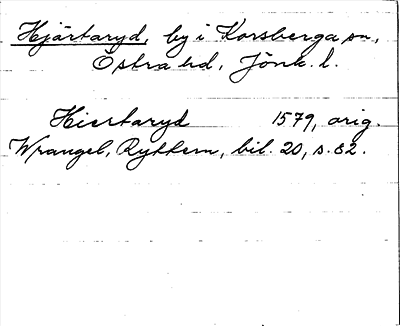 Hjärtaryd, by i Korsberga sn,
Östra hd, Jönk. l.
Hiertaryd 1579, orig.
Wrangel, Ryttern, bil. 20, s. 82.